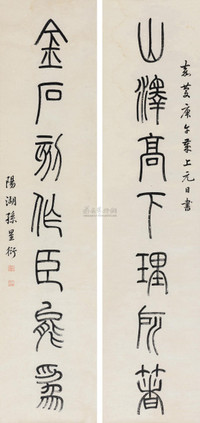 嘉慶庚午業上元日書
山澤高下理所著
金石刻作臣能為
陽湖孫星衍